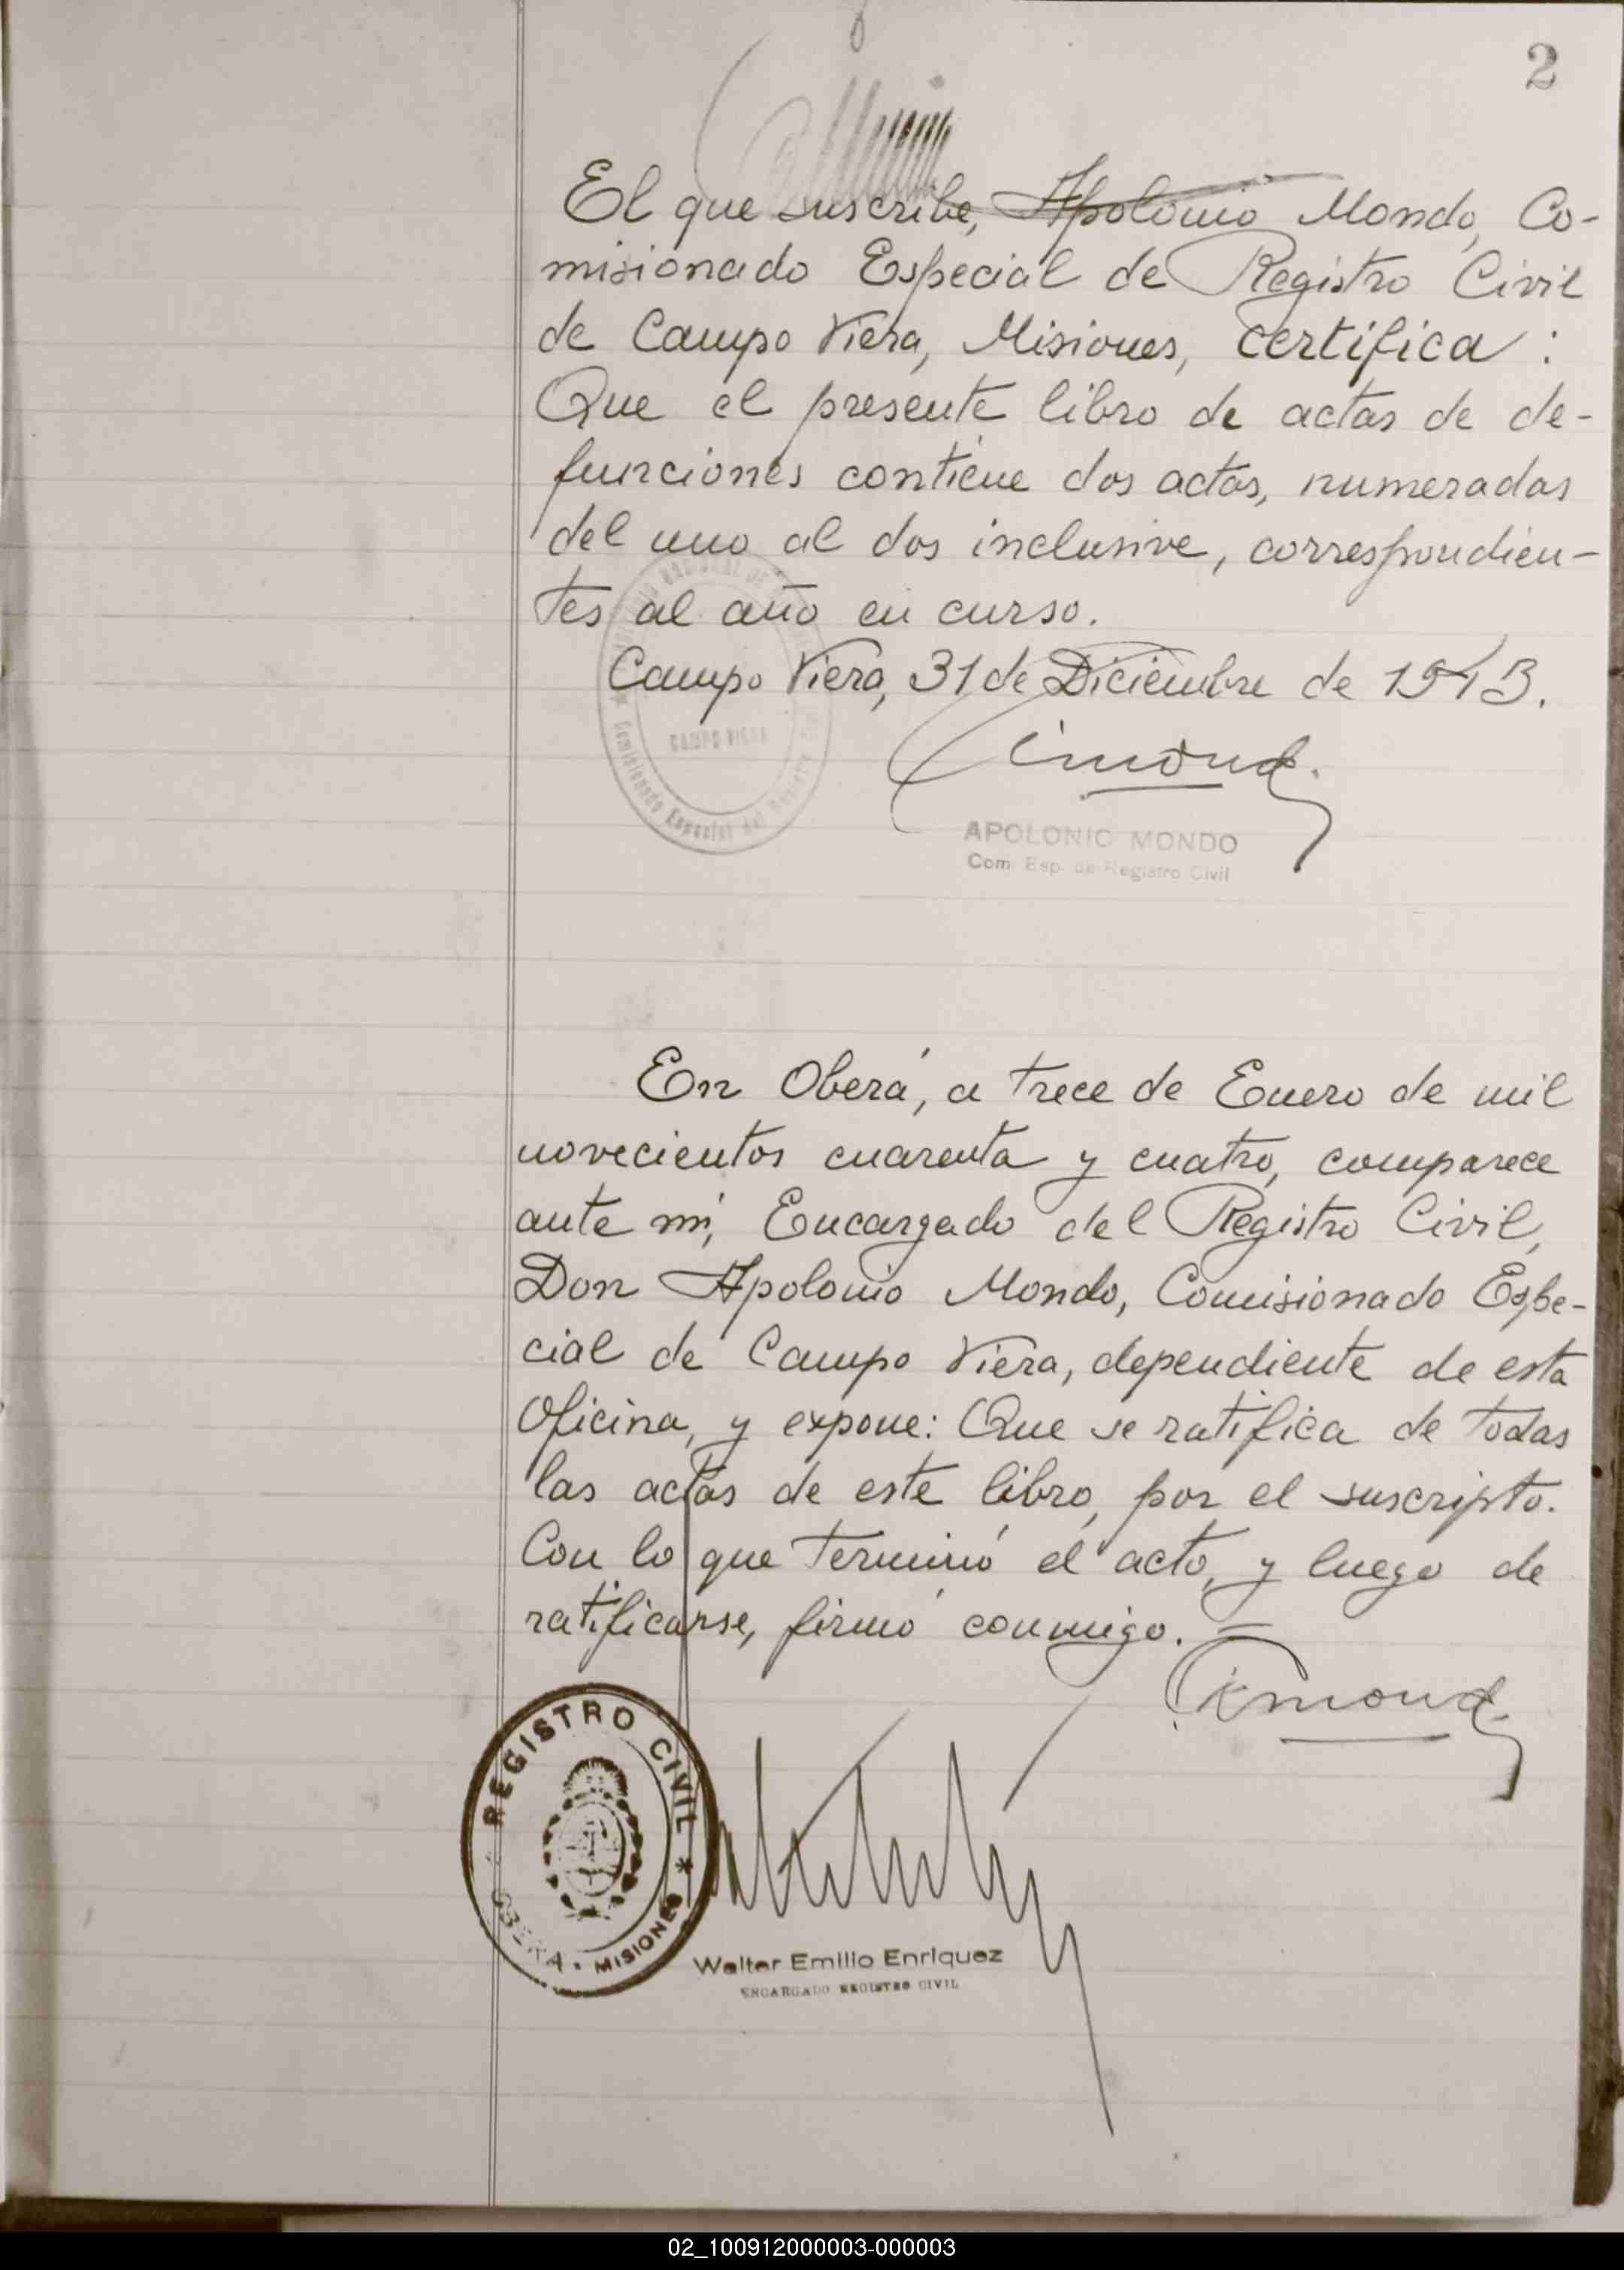 2
El que suscribe, Apolonio Mondo, Co-
misionado Especial de Registro Civil
de Campo Viera, Misiones, certifica :
Que el presente libro de actas de de-
funciones contiene dos actas, numeradas
del uno al dos inclusive, correspondien-
tes al año en curso.
Campo Viera, 31 de Diciembre de 1943.
CAMPO VIERA
Comisionado Especial del
APOLONIO MONDO
Com. Esp. de Registro Civil
En Oberá, a trece de Enero de mil
novecientos cuarenta y cuatro, comparece
ante mí, Encargado del Registro Civil,
Don Apolonio Mondo, Comisionado Espe-
cial de Campo Viera, dependiente de esta
Oficina, y expone: Que se ratifica de todas
las actas de este libro, por el suscripto.
Con lo que terminó el acto, y luego de
ratificarse, firmó conmigo. —
REGISTRO CIVIL
OBERA • MISIONES
Walter Emilio Enriquez
ENCARGADO REGISTRO CIVIL
02_100912000003-000003